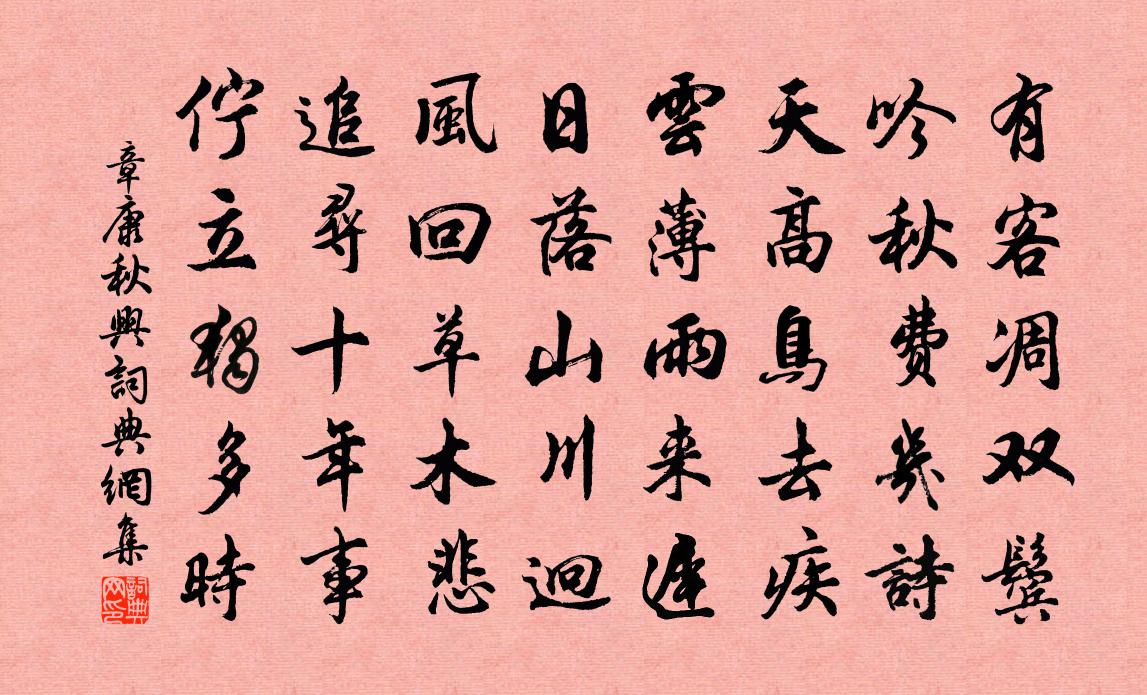 有客凋双鬓
吟秋费幾詩
天高鳥去疾
雲薄雨来遲
日落山川迥
風回草木悲
追尋十年事
佇立獨多時
章康秋興詞典網集
詞典網印